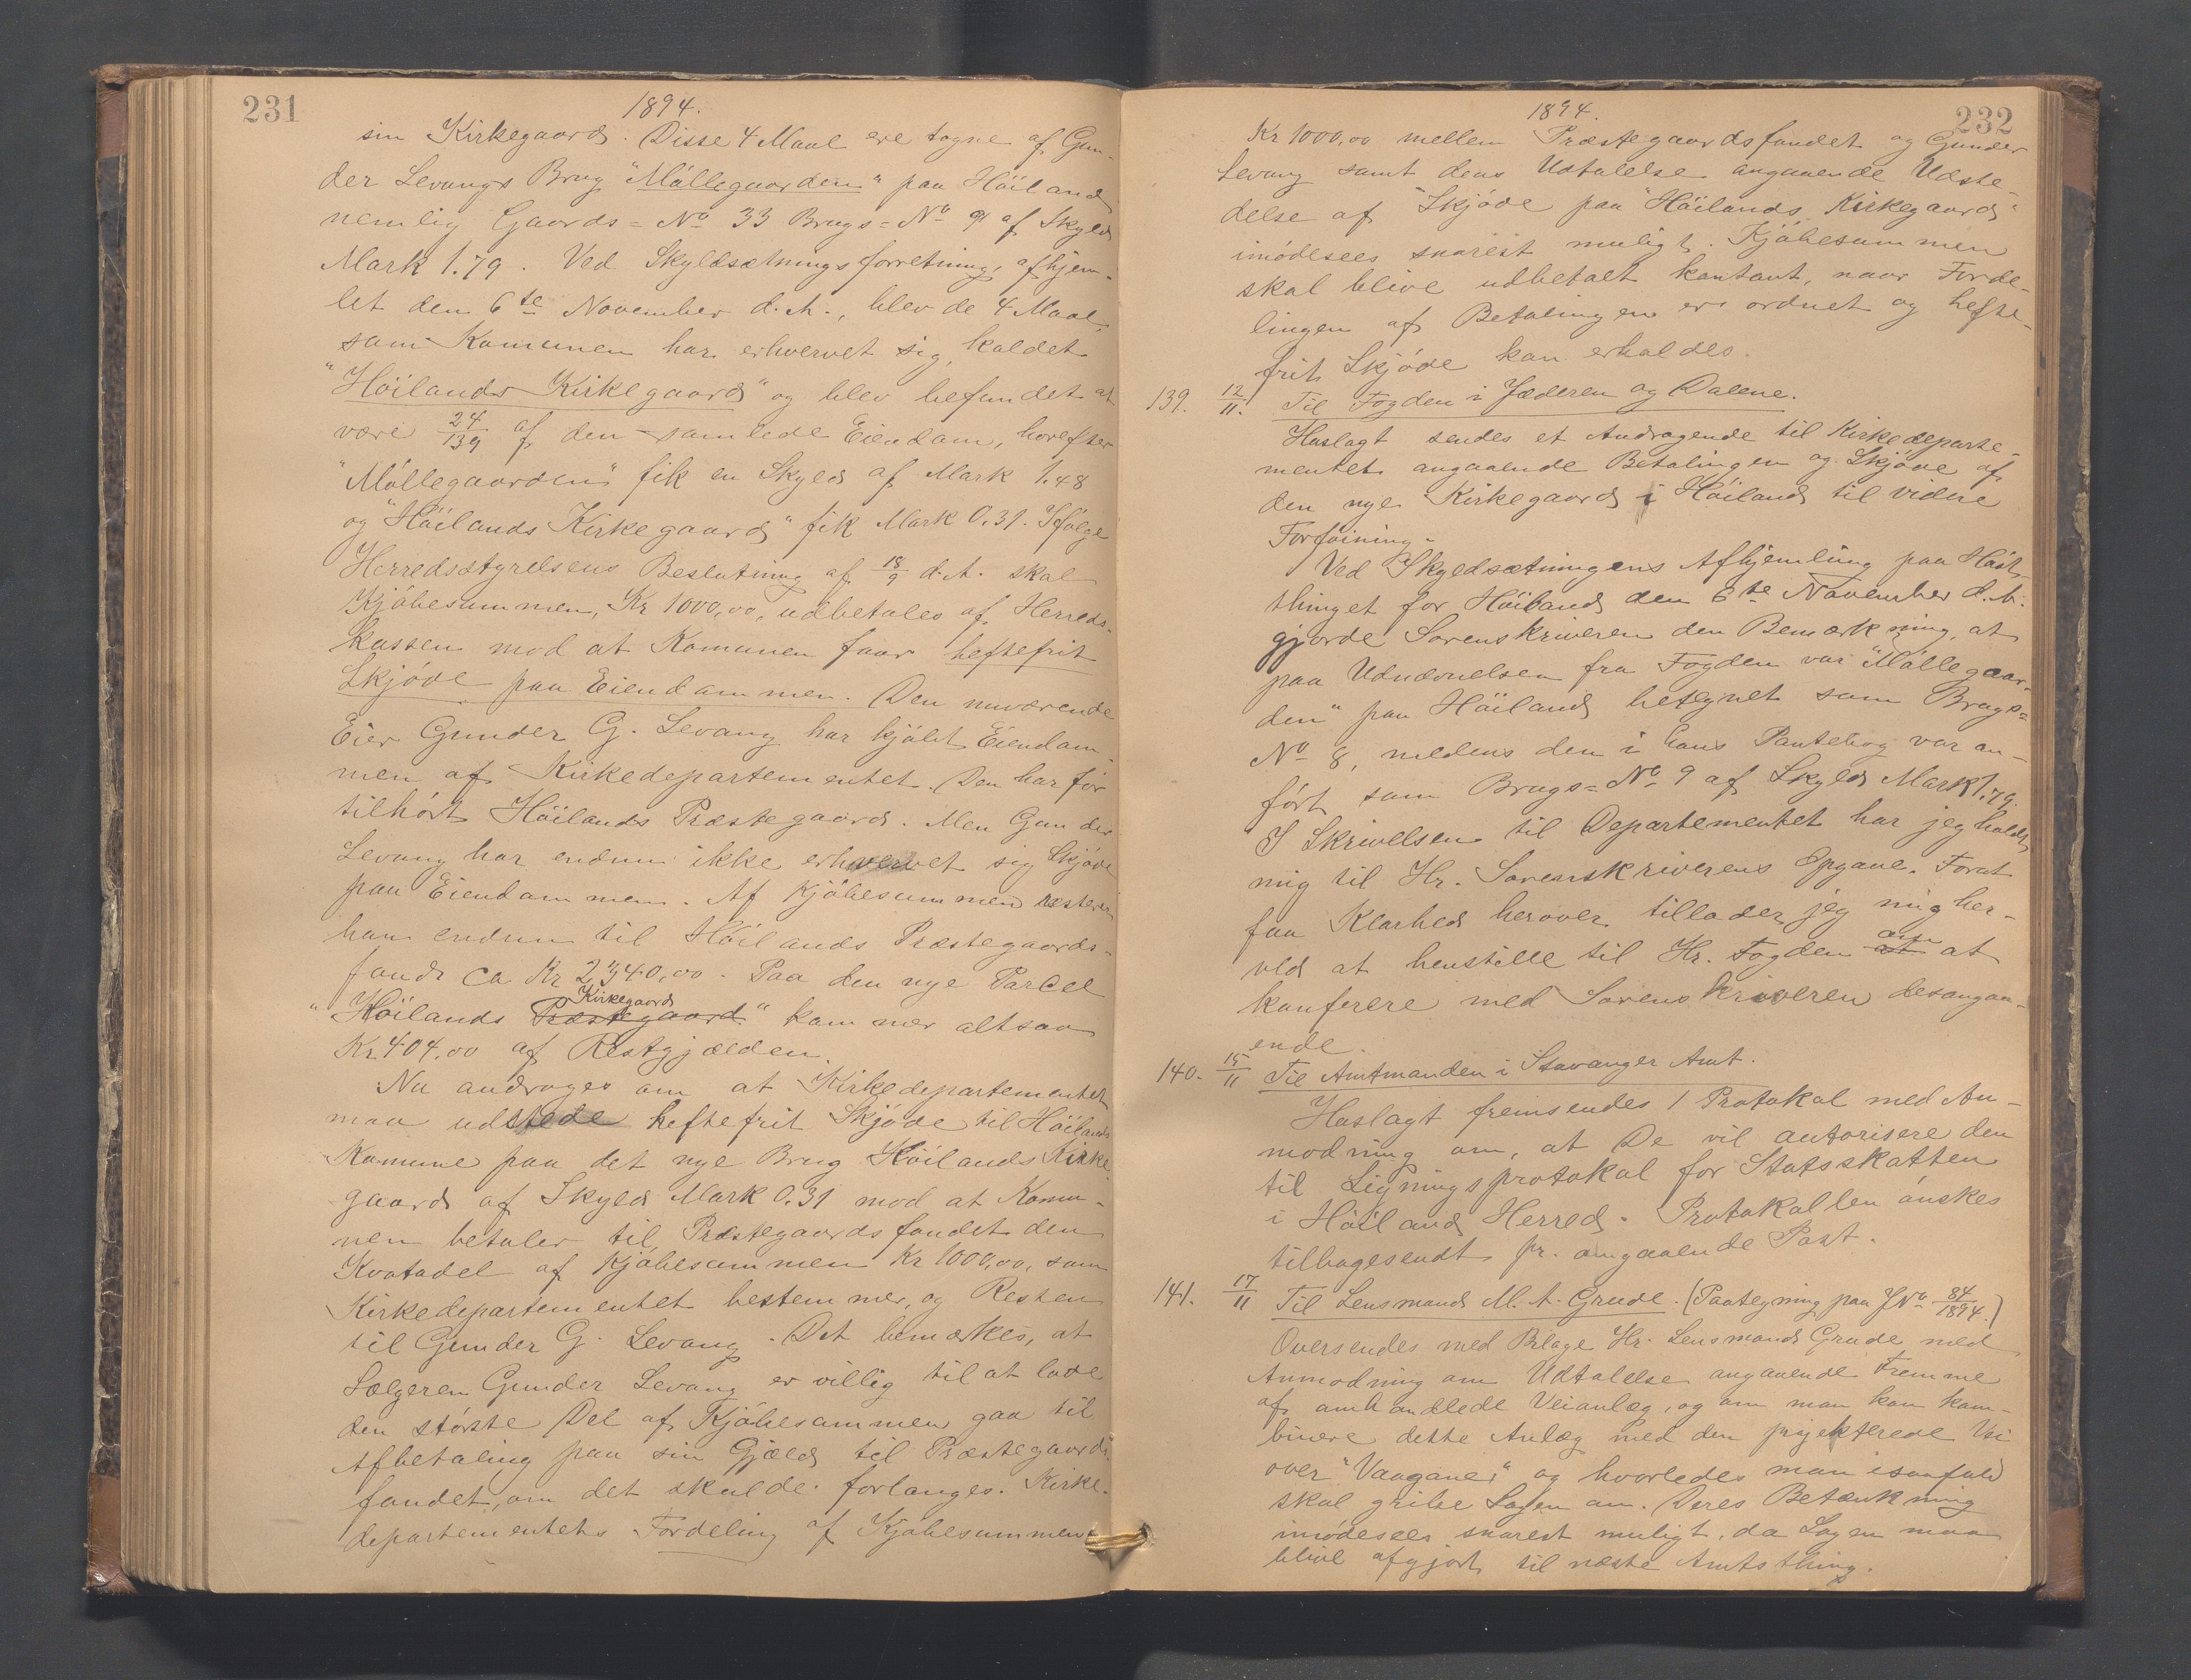 231
1894.
sin Kirkegaard. Disse 4 Maal ere tagne af Gun-
der Levangs Brug "Møllegaarden" paa Høiland
nemlig Gaards=No 33 Brugs=No 9 af Skyld
Mark 1.79. Ved Skyldsætningsforretning, afhjem-
let den 6te November d. A., blev de 4 Maal,
som Komunen har erhvervet sig, kaldet
"Høilands Kirkegaard" og blev befundet at
være 24/139 af den samlede Eiendom, hvorefter
"Møllegaarden" fik en Skyld af Mark 1.48
og "Høilands Kirkegaard" fik Mark 0.31. Ifølge
Herredsstyrelsens Beslutning af 18/9 d. A. skal
Kjøbesummen, Kr 1000,00, udbetales af Herreds-
kassen mod at Komunen faar heftefrit
Skjøde paa Eiendommen. Den nuværende
Eier Gunder G. Levang har kjøbt Eiendom-
men af Kirkedepartementet. Den har før
tilhørt Høilands Præstegaard. Men Gunder
Levang har endnu ikke erhvervet sig Skjøde
paa Eiendommen. Af Kjøbesummen resterer
han endnu til Høilands Præstegaards-
fond ca Kr 2340,00. Paa den nye Parcel
"Høilands Præstegaard Kirkegaard" kommer altsaa
Kr 404,00 af Restgjælden.
Nu andrages om at Kirkedepartementet
maa udstede heftefrit Skjøde til Høilands
Komune paa det nye Brug Høilands Kirke-
gaard af Skyld Mark 0.31 mod at Komu-
nen betaler til Præstegaardsfondet den
Kvotadel af Kjøbesummen Kr 1000,00, som
Kirkedepartementet bestemmer, og Resten
til Gunder G. Levang. Det bemærkes, at
Sælgeren Gunder Levang er villig til at lade
den største Del af Kjøbesummen gaa til
Afbetaling paa sin Gjæld til Præstegaards-
fondet, om det skulde forlanges. Kirke-
departementets Fordeling af Kjøbesummen
232
1894.
Kr 1000,00 mellem Præstegaardsfondet og Gunder
Levang samt dens Udtalelse angaaende Udste-
delse af Skjøde paa "Høilands Kirkegaard"
imødesees snarest muligt. Kjøbesummen
skal blive udbetalt kontant, naar Forde-
lingen af Betalingen er ordnet og hefte-
frit Skjøde kan erholdes.
139. 12/11. Til Fogden i Jæderen og Dalene.
Hoslagt sendes et Andragende til Kirkedeparte-
mentet angaaende Betalingen og Skjøde af
den nye Kirkegaard i Høiland til videre
Forføining.
Ved Skyldsætningens Afhjemling paa Høst-
thinget for Høiland den 6te November d. A.
gjorde Sorenskriveren den Bemærkning, at
paa Udnævnelsen fra Fogden var "Møllegaar-
den" paa Høiland betegnet som Brugs=
No 8, medens den i hans Pantebog var an-
ført som Brugs=No 9 af Skyld Mark 1.79.
I Skrivelsen til Departementet har jeg holdt
mig til Hr. Sorenskriverens Opgave. Forat
faa Klarhed herover tillader jeg mig her-
ved at henstille til Hr. Fogden at om at
konferere med Sorenskriveren desangaa-
ende.
140. 15/11 Til Amtmanden i Stavanger Amt.
Hoslagt fremsendes 1 Protokol med An-
modning om, at De vil autorisere den
til Ligningsprotokol for Statsskatten
i Høiland Herred. Protokollen ønskes
tilbagesendt pr. omgaaende Post.
141. 17/11 Til Lensmand M. A. Grude. (Paategning paa JNo 84/1894.)
Oversendes med Bilage Hr. Lensmand Grude med
Anmodning om Udtalelse angaaende Fremme
af omhandlede Veianlæg, og om man kan kom-
binere dette Anlæg med den projekterede Vei
over "Vaagane" og hvorledes man isaafald
skal gribe Sagen an. Deres Betænkning
imødesees snarest muligt, da Sagen maa
blive afgjort til næste Amtsthing.